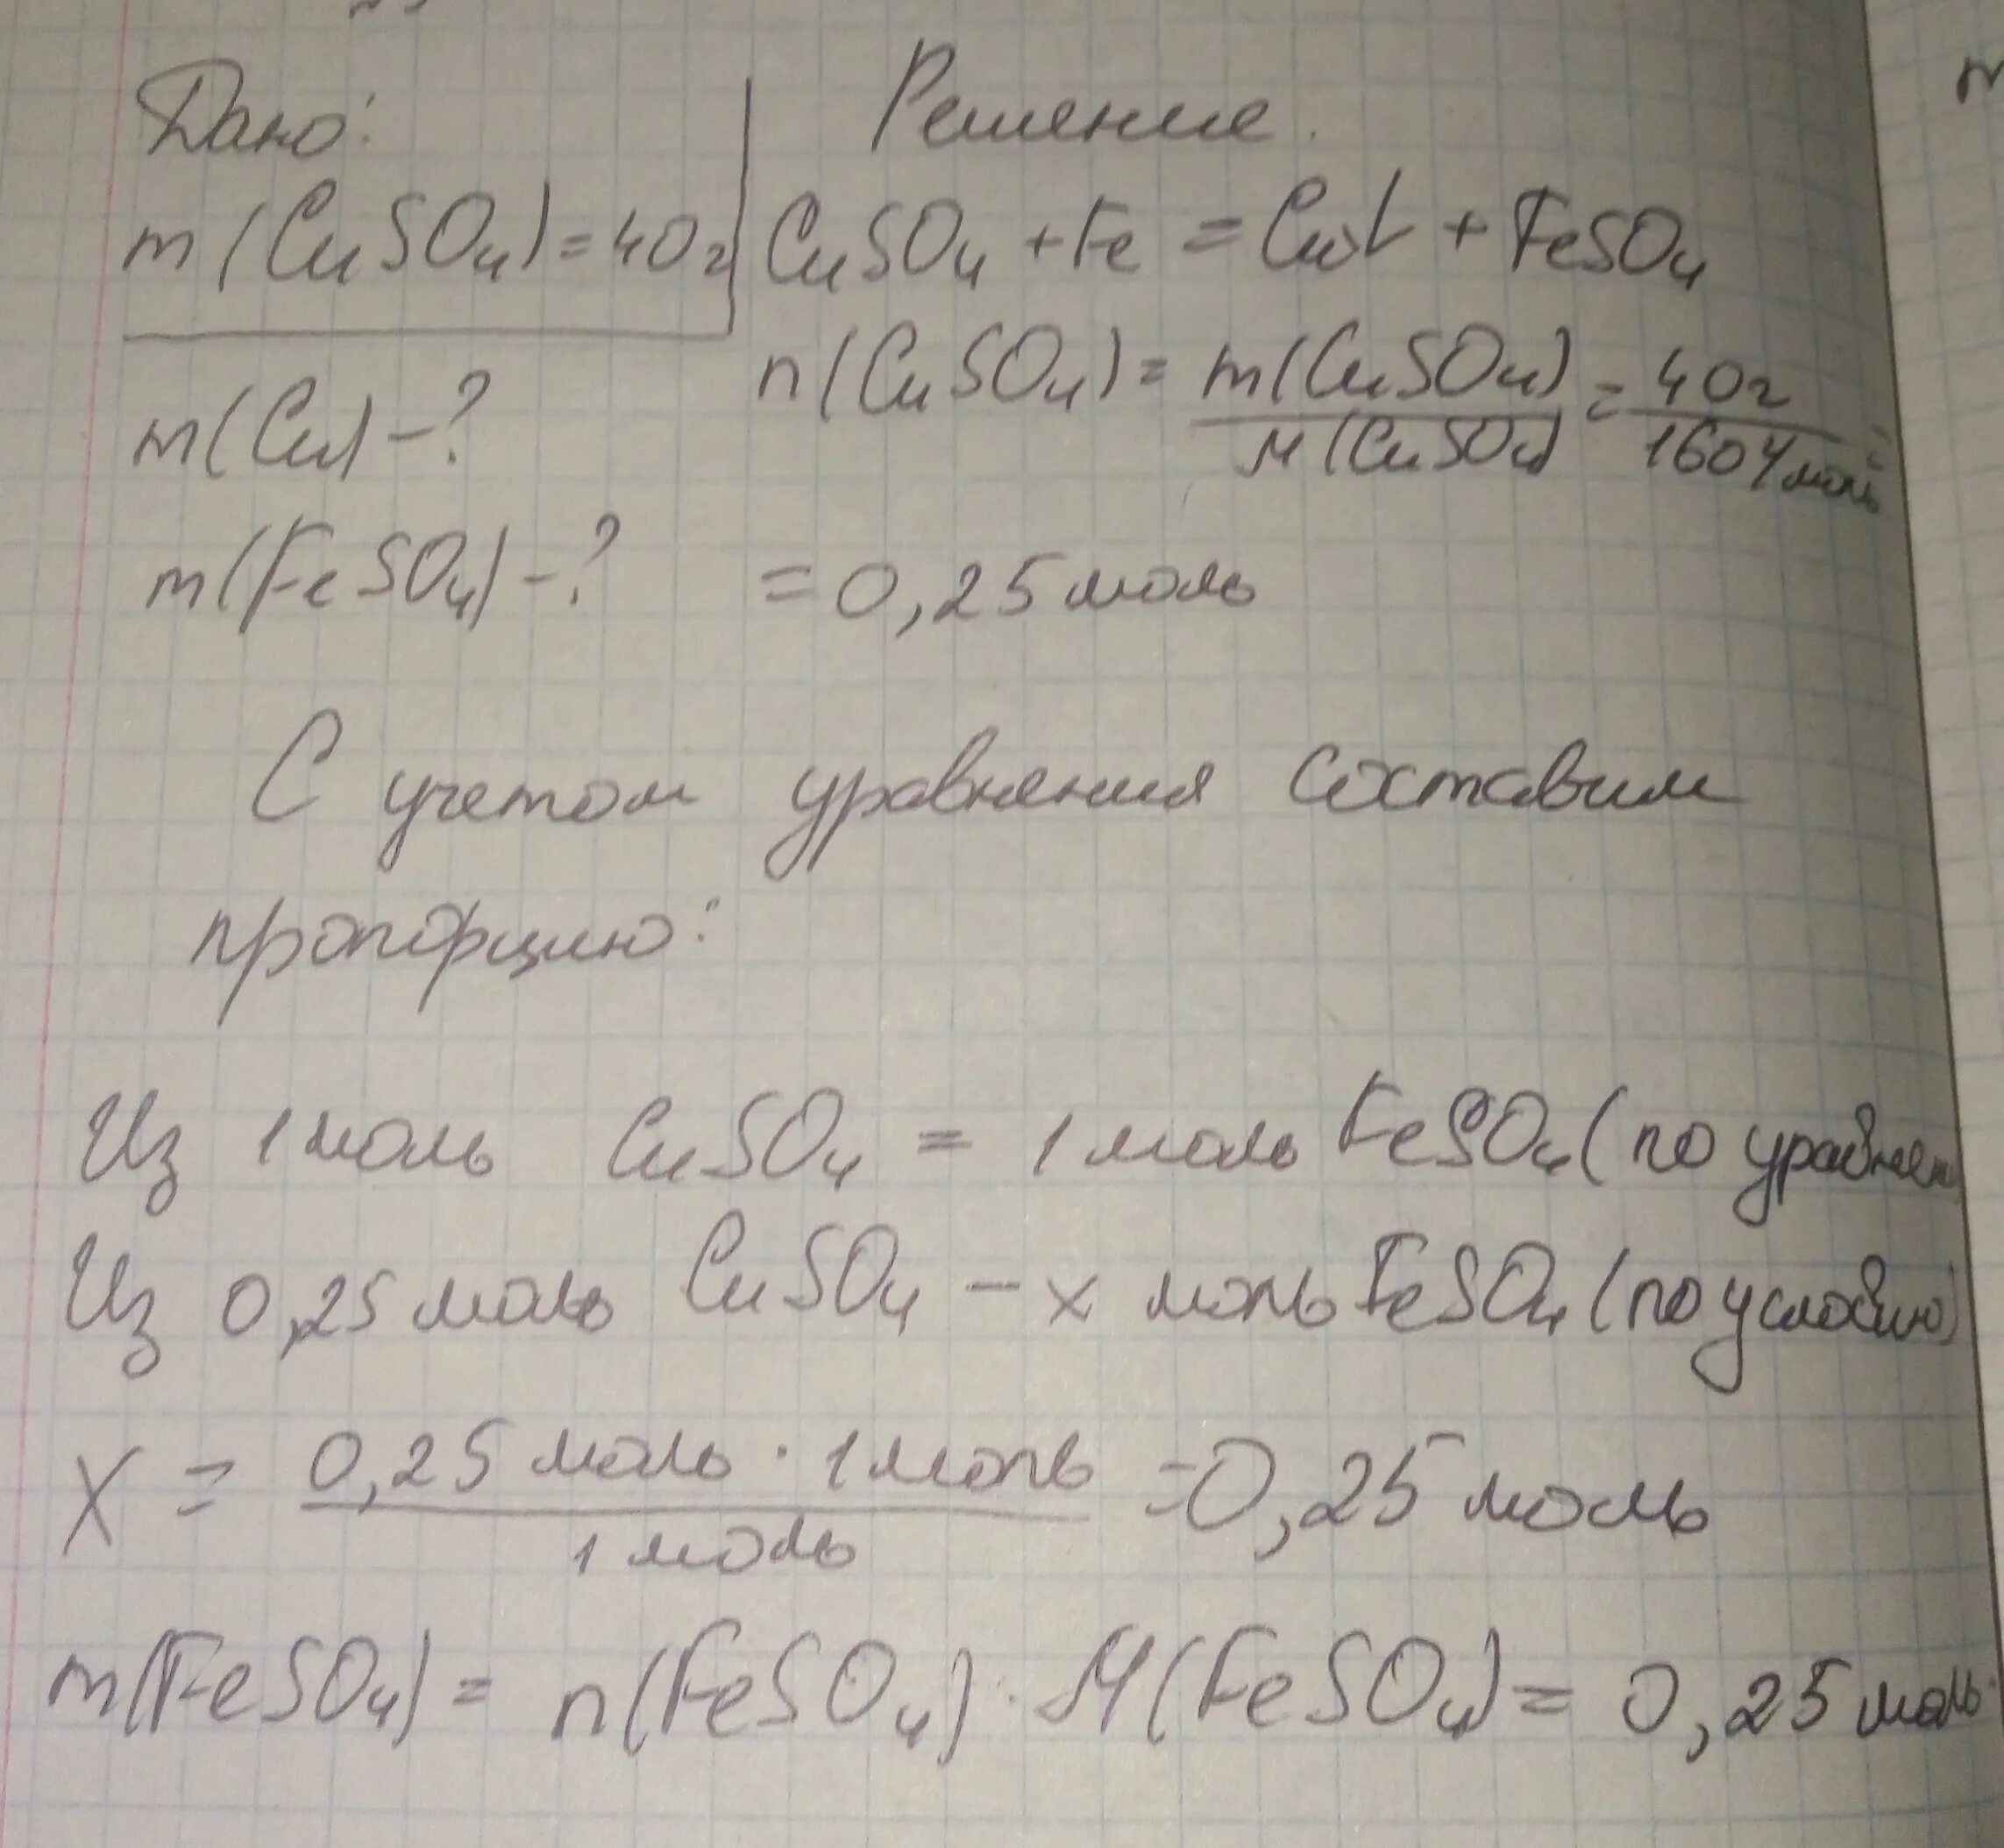 Дано:
m(CuSO₄)=40г
m(Cu)-?
m(FeSO₄)-?
Решение.
CuSO₄+Fe=Cu↓+FeSO₄
n(CuSO₄)=m(CuSO₄)/M(CuSO₄)=40г/160г/моль
=0,25моль
С учетом уравнения составим
пропорцию:
Из 1моль CuSO₄ = 1моль FeSO₄(по уравнен
Из 0,25моль CuSO₄ - x моль FeSO₄(по условию)
X = 0,25моль · 1моль/1моль =0,25моль
m(FeSO₄)= n(FeSO₄)·M(FeSO₄)= 0,25моль·